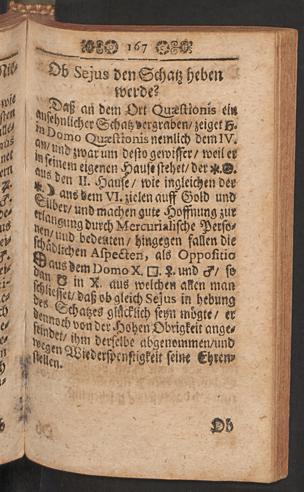 167
Ob Sejus den Schatz heben
werde?
Daß an dem Ort Quæstionis ein
ansehnlicher Schatz vergraben/ zeiget ♄.
in Domo Quæstionis nemlich dem IV.
an/ und zwar um desto gewisser/ weil er
in seinem eigenen Hause stehet/ der ⚹. ☉.
aus den II. Hause/ wie ingleichen der
⚹. ☽ aus dem VI. zielen auff Gold und
Silber/ und machen gute Hoffnung zur
erlangung durch Mercurialische Perso-
nen/ und bedeuten/ hingegen fallen die
schädlichen Aspecten, als Oppositio
aus dem Domo X. □. ☿. und ♂/ so
dan in X. aus welchen allen man
schliesset/ daß ob gleich Sejus in hebung
des Schatzes glücklich seyn mögte/ er
dennoch von der Hohen Obrigkeit ange-
feindet/ ihm derselbe abgenommen/ und
wegen Wiederspenstigkeit seine Ehren-
stellen.
Ob